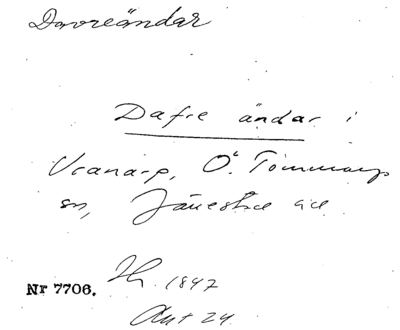 Davreändar
Dafre ändar i
Vranarp, Ö. Tommarps
sn, Järrestad
Nr 7706. Th. 1847
Akt 24